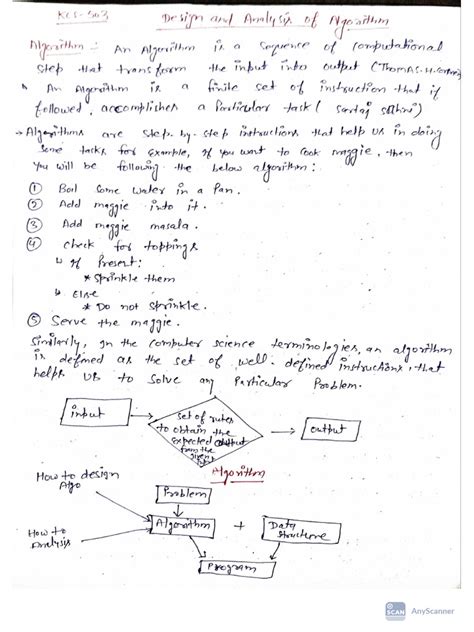 KCS-503 Design and Analysis of Algorithm
Algorithm: An Algorithm is a sequence of computational
step that transform the input into output (Thomas.H.
An Algorithm is a finite set of instruction that if
followed, accomplishes a Particular task (sartaj sahni)
→ Algorithms are step-by-step instructions that help us in doing
some tasks for example, if you want to cook maggie, then
you will be following the below algorithm:
① Boil some water in a Pan.
② Add maggie into it.
③ Add maggie masala.
④ check for toppings
↳ if Present:
* sprinkle them
↳ Else
* Do not sprinkle.
⑤ Serve the maggie.
Similarly, In the computer science terminologies, an algorithm
is defined as the set of well-defined instructions, that
helps us to solve any Particular Problem.
input
set of rules
to obtain the
expected output
from the
given
output
Algorithm
How to design
Algo
Problem
Algorithm
+
Data
structure
How to
Analysis
Program
SCAN AnyScanner